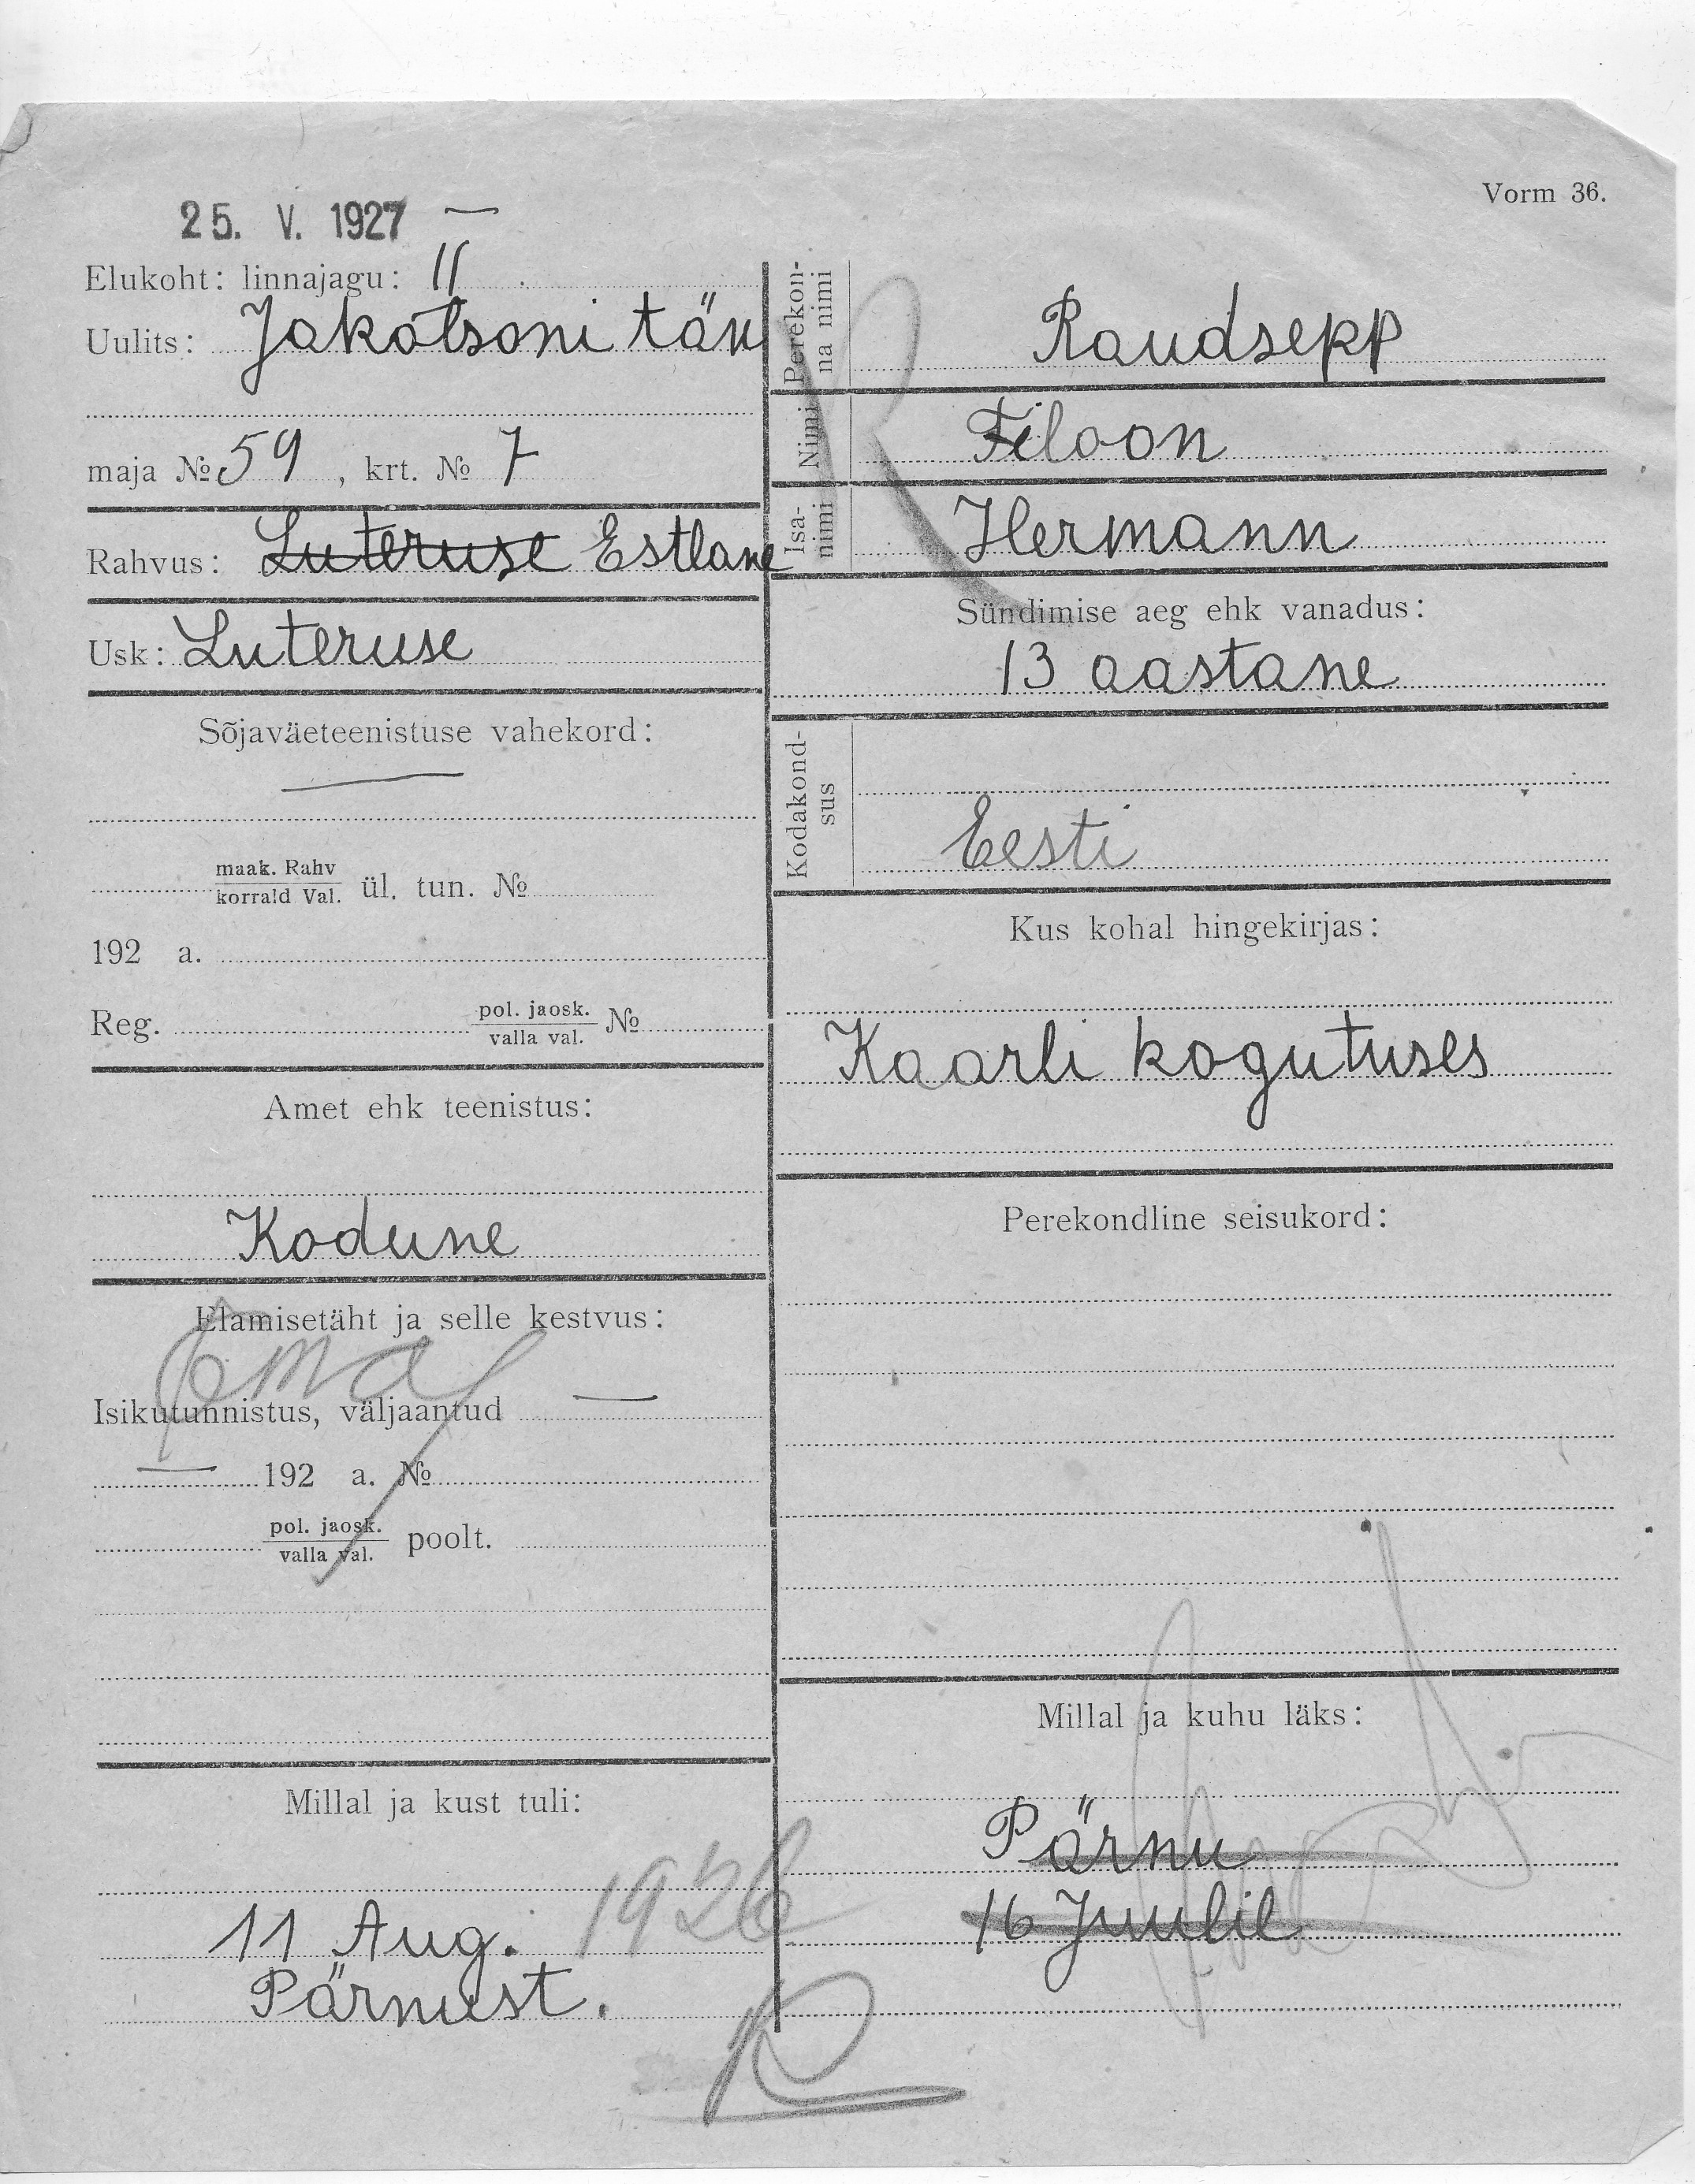 Vorm 36.
25. V. 1927 —
Elukoht: linnajagu: II
Uulits: Jakobsoni tän
maja № 59, krt. № 7
Rahvus: Luteruse Estlane
Usk: Luteruse
Sõjaväeteenistuse vahekord:
—
maak. Rahv
korrald Val. ül. tun. №
192 a.
Reg. pol. jaosk.
valla val. №
Amet ehk teenistus:
Kodune
Elamisetäht ja selle kestvus:
Isikutunnistus, väljaantud —
— 192 a. №
pol. jaosk.
valla val. poolt.
Millal ja kust tuli:
11 Aug. 1926
Pärnust.
Perekon-
na nimi Raudsepp
Nimi Filoon
Isa-
nimi Hermann
Sündimise aeg ehk vanadus:
13 aastane
Kodakond-
sus
Eesti
Kus kohal hingekirjas:
Kaarli kogutuses
Perekondline seisukord:
Millal ja kuhu läks:
Pärnu
16 Juulil